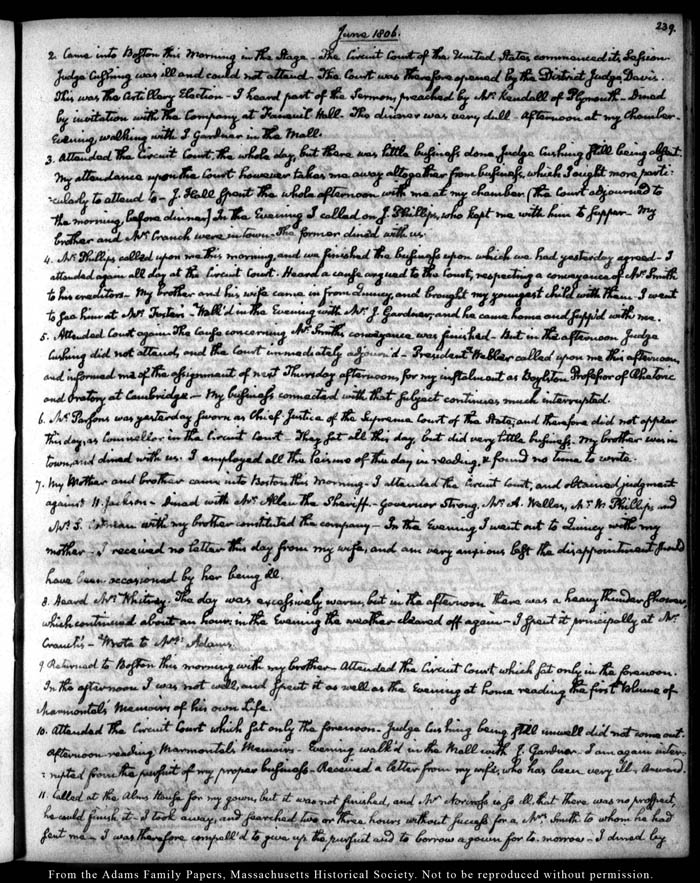 239.
June 1806.
2. Came into Boston this Morning in the Stage - The Circuit Court of the United States commenced its Session.
Judge Cushing was ill and could not attend - The Court was therefore opened by the District Judge Davis.
This was the Artillery Election - I heard part of the Sermon, preached by Mr. Kendall of Plymouth - Dined
by invitation with the Company at Faneuil Hall - The dinner was very dull - Afternoon at my chamber -
Evening, walking with J Gardner in the Mall.
3. Attended the Circuit Court, the whole day, but there was little business done Judge Cushing still being absent.
My attendance upon the Court however takes me away altogether from business, which I ought more parti:
:cularly to attend to - J. Hall spent the whole afternoon with me at my chamber (the Court adjourned to
the morning, before dinner) In the Evening I called on J. Phillips, who kept me with him to supper - My
brother and Mr. Cranch were in town - The former dined with us.
4. Mr. Phillips called upon me this morning, and we finished the business upon which we had yesterday agreed - I
attended again all day at the Circuit Court - Heard a cause argued to the Court, respecting a conveyance of Mr. Smith
to his creditors - My brother and his wife came in from Quincy, and brought my youngest child with them - I went
to see him at Mr. Foster's - Walk'd in the Evening with Mr. J. Gardner, and he came home and supp'd with me.
5. Attended Court again The Cause concerning Mr. Smith's conveyance was finished - But in the afternoon Judge
Cushing did not attend, and the Court immediately adjourn'd - President Webber called upon me this afternoon,
and informed me of the assignment of next Thursday afternoon, for my instalment as Boylston Professor of Rhetoric
and Oratory at Cambridge - My business connected with that subject continues much interrupted.
6. Mr. Parsons was yesterday sworn as Chief Justice of the Supreme Court of the State, and therefore did not appear
this day, as Counsellor in the Circuit Court - They sat all this day, but did very little business. My brother was in
town, and dined with us. I employed all the leisure of the day in reading, & found no time to write.
7. My Mother and brother came into Boston this Morning - I attended the Circuit Court, and obtained judgment
against H. Jackson - Dined with Mr. Allen the Sheriff - Governor Strong, Mr. A. Welles, Mr. W. Phillips and
Mr. S. with my brother constituted the company - In the Evening I went out to Quincy with my
mother - I received no letter this day from my wife, and am very anxious lest the disappointment should
have been occasioned by her being ill.
8. Heard Mr. Whitney. The day was excessively warm, but in the afternoon there was a heavy thunder shower,
which continued about an hour; in the Evening the weather cleared off again - I spent it principally at Mr.
Cranch's - Wrote to Mrs. Adams.
9 Returned to Boston this morning with my brother - Attended the Circuit Court which sat only in the forenoon.
In the afternoon I was not well, and spent it as well as the Evening at home reading the first Volume of
Marmontel's Memoirs of his own Life.
10. Attended the Circuit Court which sat only the forenoon - Judge Cushing being still unwell did not come out.
Afternoon reading Marmontel's Memoirs - Evening walk'd in the Mall with J. Gardner. I am again inter-
:rupted from the pursuit of my proper business - Received a letter from my wife, who has been very ill. Answd.
11. Called at the Alms House for my gown, but it was not finished, and Mr. Norcross is so ill, that there was no prospect,
he could finish it - I took away, and searched two or three hours without success for a Mrs. Smith to whom he had
sent me - I was therefore compell'd to give up the pursuit and to borrow a gown for to-morrow - I dined by
From the Adams Family Papers, Massachusetts Historical Society. Not to be reproduced without permission.